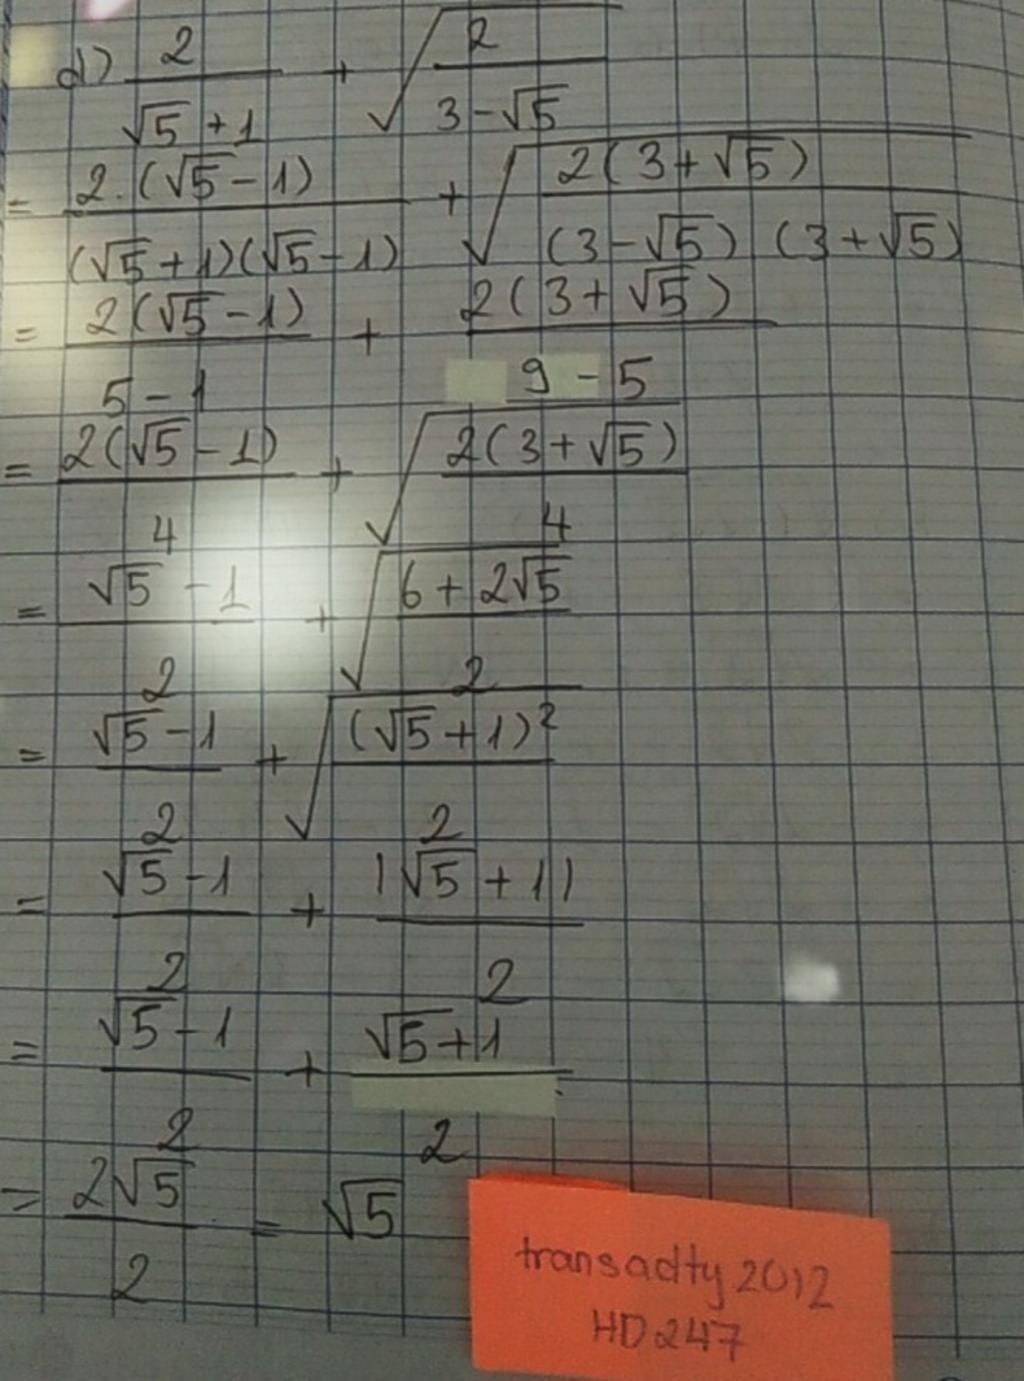 d) 2/(√5 + 1) + √(2/(3 - √5))
= 2.(√5 - 1)/((√5 + 1)(√5 - 1)) + √(2(3 + √5)/((3 - √5)(3 + √5)))
= 2(√5 - 1)/(5 - 1) + 2(3 + √5)/(9 - 5)
= 2(√5 - 1)/4 + √(2(3 + √5)/4)
= (√5 - 1)/2 + √((6 + 2√5)/2)
= (√5 - 1)/2 + √((√5 + 1)²/2)
= (√5 - 1)/2 + |√5 + 1|/2
= (√5 - 1)/2 + (√5 + 1)/2
= 2√5/2 = √5
transadty 2012
HD247